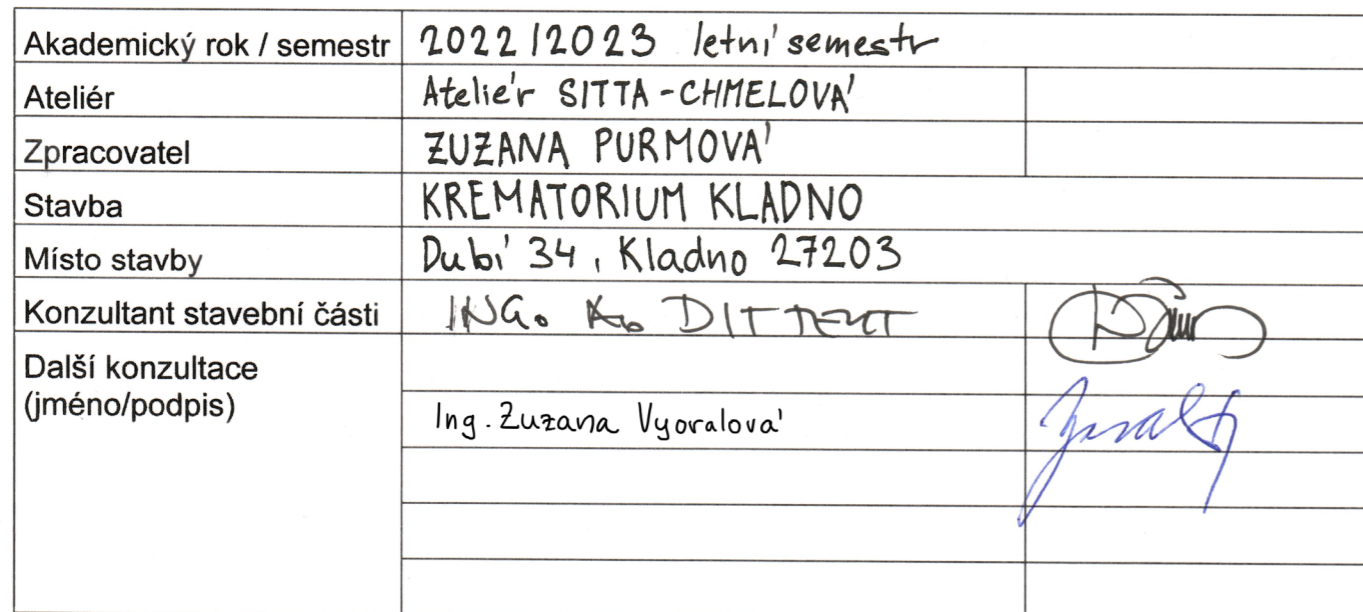 Akademický rok / semestr 2022/2023 letní semestr
Ateliér Ateliér SITTA-CHMELOVÁ
Zpracovatel ZUZANA PURMOVÁ
Stavba KREMATORIUM KLADNO
Místo stavby Dubí 34, Kladno 27203
Konzultant stavební části ING.
Další konzultace
(jméno/podpis)
Ing. Zuzana Vyoralová